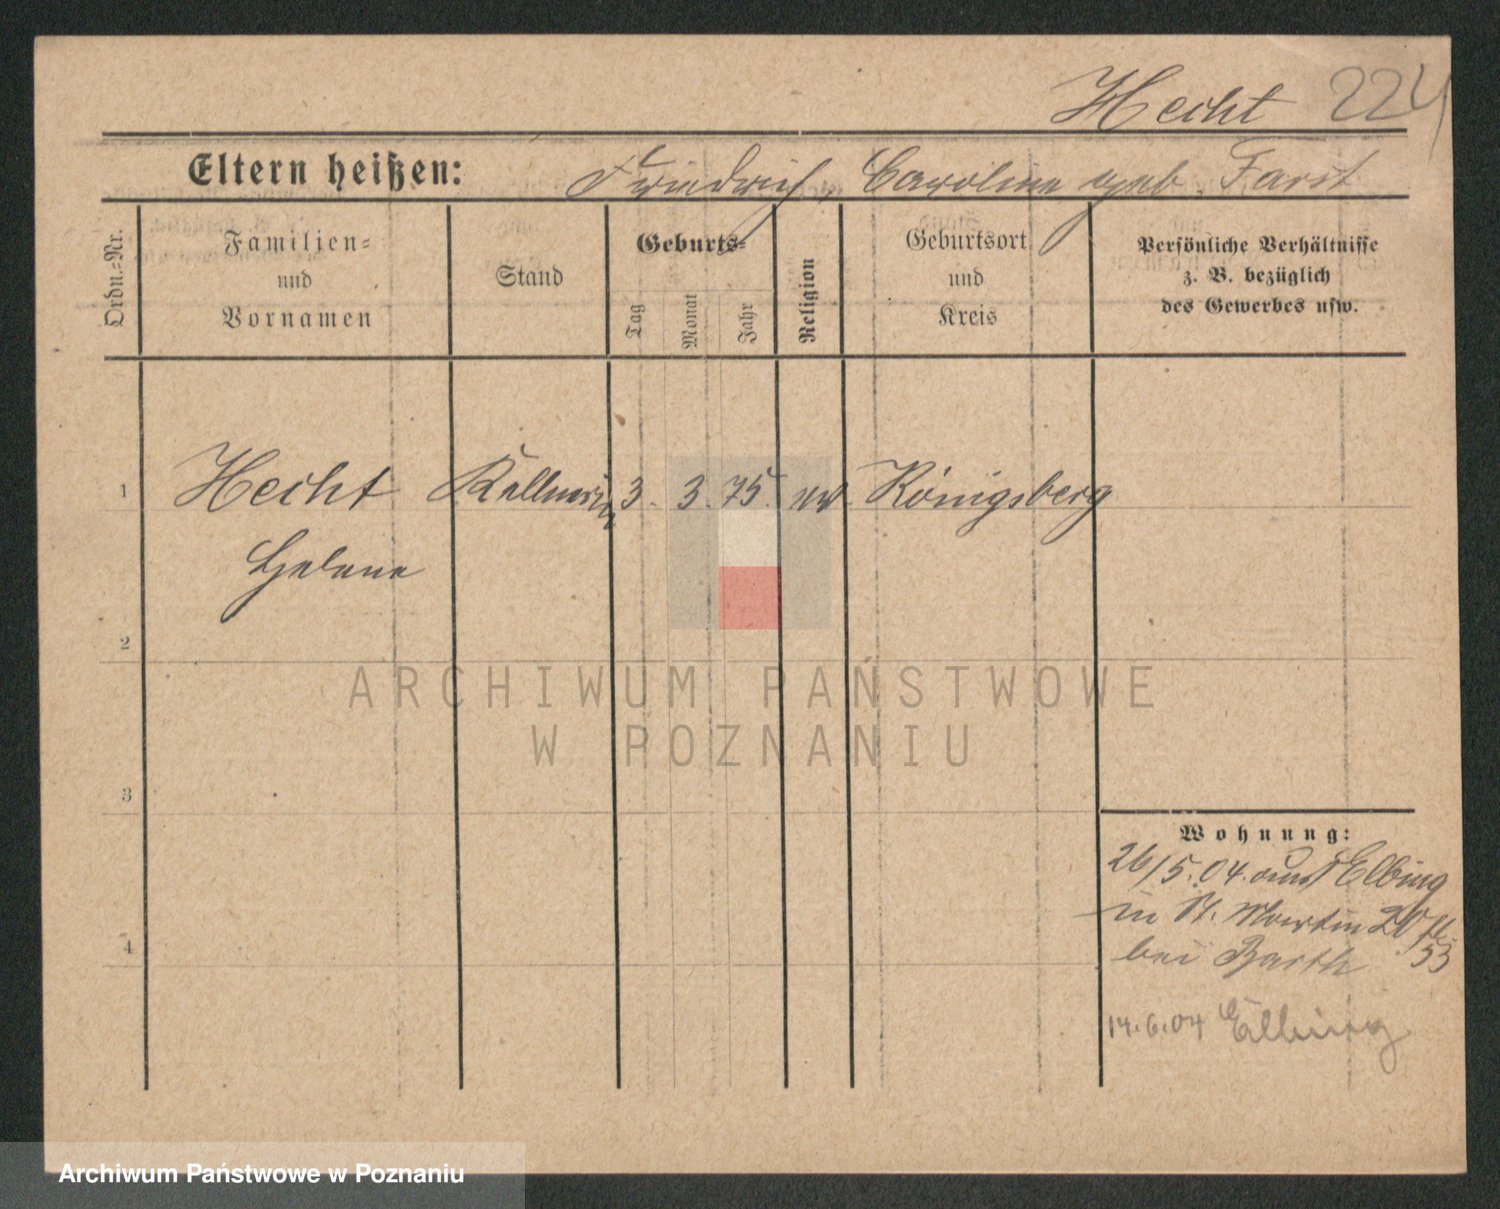 Hecht 224
Eltern heißen: Friedrich, Caroline geb. Farst
Ordn.=Nr.
Familien=
und
Vornamen
Stand
Geburts=
Tag
Monat
Jahr
Religion
Geburtsort
und
Kreis
Persönliche Verhältnisse
z. B. bezüglich
des Gewerbes usw.
1 Hecht Kellnerin 3. 3. 75. ev. Königsberg
Helene
2
3
4
ARCHIWUM PAŃSTWOWE
W POZNANIU
Wohnung:
26/5.04. aus Elbing
in St. Martin 20
bei Barth 53
14.6.04 Elbing
Archiwum Państwowe w Poznaniu